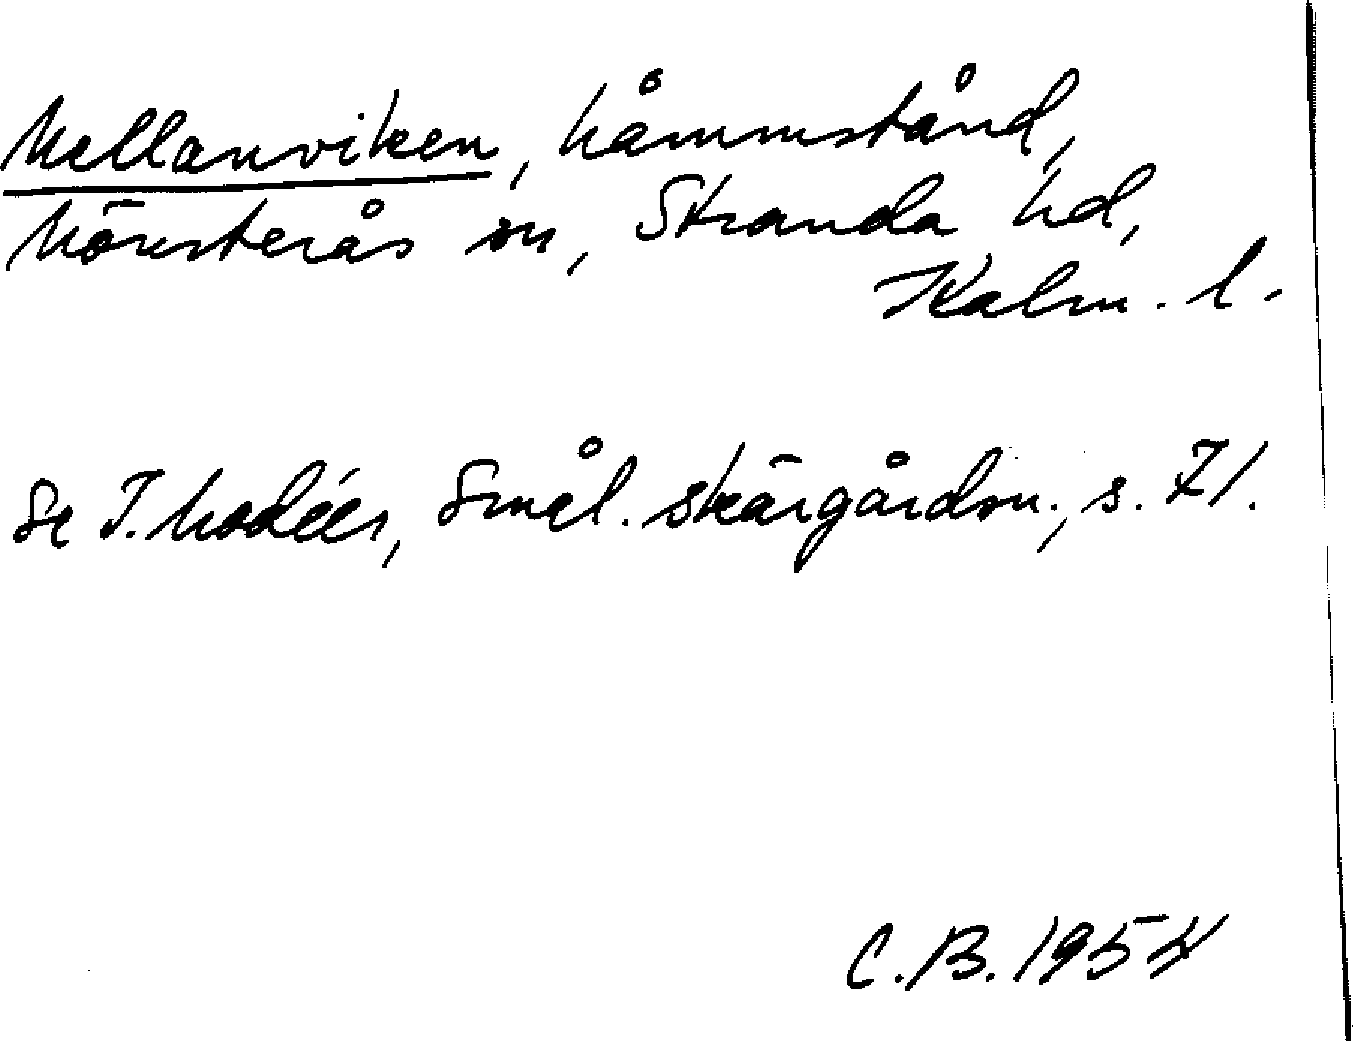 Mellanviken, håmmstånd,
Mönsterås sn, Stranda hd,
Kalm. l.
Se T. Modéer, Smål. skärgårdsn., s. 71.
C.B. 1954